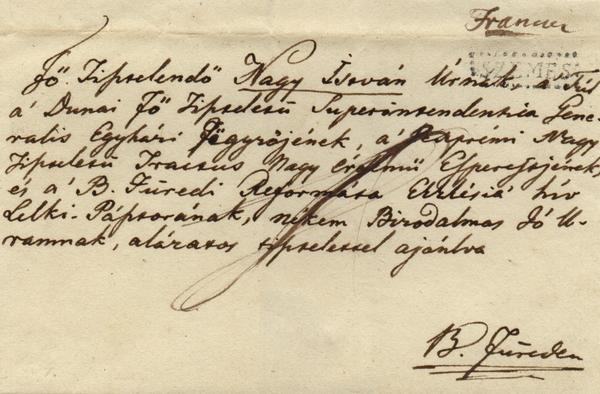 Franco
SZEMES
Fő Tisztelendő Nagy István Úrnak a Túl
a' Dunai Fő Tiszteletű Superintendentia Gene-
ralis Egyházi Főjegyzőjének, a' Veszprémi Nagy
Tiszteletű Tractus Nagy Érdemű Esperessének,
és a' B. Füredi Reformata Ekklésia hív
Lelki-Pásztorának, nékem Birodalmas Jó U-
ramnak, alázatos tisztelettel ajánlva
B. Füreden